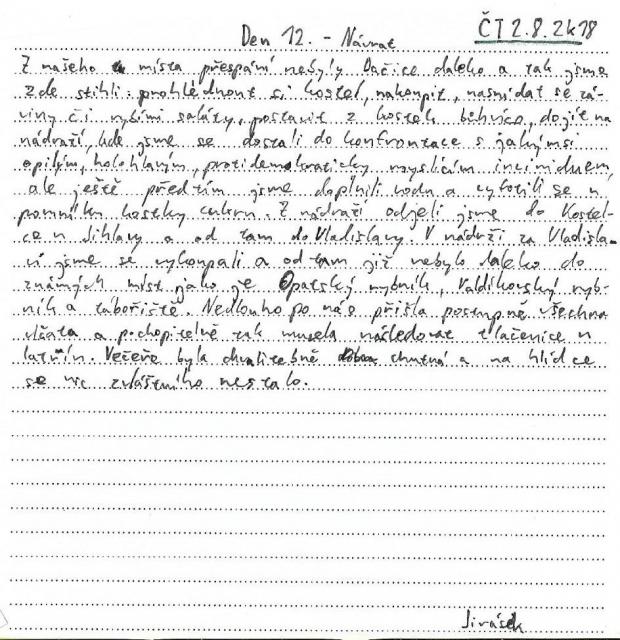 ČT 2.8.2k18
Den 12. - Návrat
Z našeho místa přespání nebyly Dačice daleko a tak jsme
zde stihli: prohlédnout si kostel, nakoupit, nasnídat se zá-
viny či rybími saláty, postavit z kostek, dojít na
nádraží, kde jsme se dostali do konfrontace s jakýmsi
opilým, holohlavým, protidemokraticky myslícím individuem,
ale ještě předtím jsme doplnili vodu a vyfotili se u
pomníku kostky cukru. Z nádraží odjeli jsme do Kostel-
ce u Jihlavy a od tam do Vladislavy. V nádrži za Vladisla-
ví jsme se vykoupali a od tam již nebylo daleko do
známých míst jako je Opatský rybník, Valdíkovský ryb-
ník a tábořiště. Nedlouho po nás přišla postupně všechna
vlčata a pochopitelně tak musela následovat tlačenice u
latrín. Večeře byla chvalitebně chutná a na hlídce
se nic zvláštního nestalo.
Jirásek